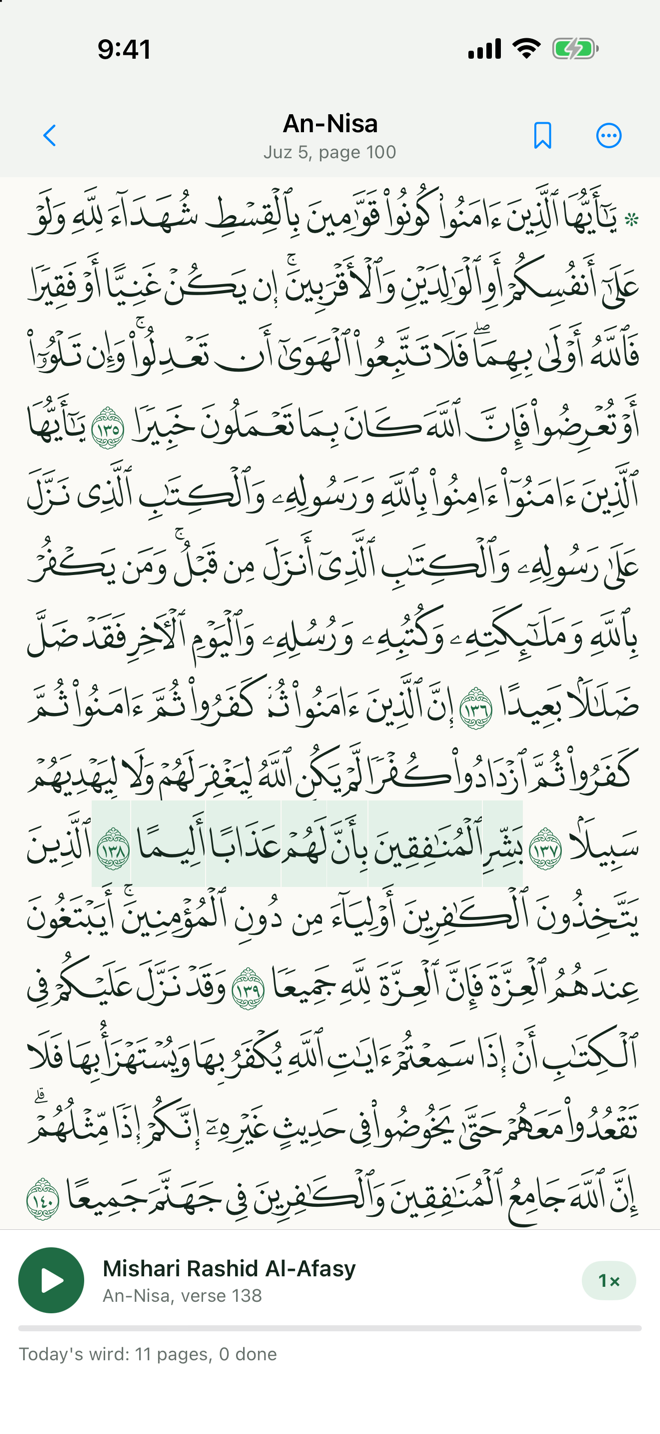 9:41
An-Nisa
Juz 5, page 100
۞ يَٰٓأَيُّهَا ٱلَّذِينَ ءَامَنُوا۟ كُونُوا۟ قَوَّٰمِينَ بِٱلْقِسْطِ شُهَدَآءَ لِلَّهِ وَلَوْ
عَلَىٰٓ أَنفُسِكُمْ أَوِ ٱلْوَٰلِدَيْنِ وَٱلْأَقْرَبِينَ ۚ إِن يَكُنْ غَنِيًّا أَوْ فَقِيرًا
فَٱللَّهُ أَوْلَىٰ بِهِمَا ۖ فَلَا تَتَّبِعُوا۟ ٱلْهَوَىٰٓ أَن تَعْدِلُوا۟ ۚ وَإِن تَلْوُۥٓا۟
أَوْ تُعْرِضُوا۟ فَإِنَّ ٱللَّهَ كَانَ بِمَا تَعْمَلُونَ خَبِيرًا ١٣٥ يَٰٓأَيُّهَا
ٱلَّذِينَ ءَامَنُوٓا۟ ءَامِنُوا۟ بِٱللَّهِ وَرَسُولِهِۦ وَٱلْكِتَٰبِ ٱلَّذِى نَزَّلَ
عَلَىٰ رَسُولِهِۦ وَٱلْكِتَٰبِ ٱلَّذِىٓ أَنزَلَ مِن قَبْلُ ۚ وَمَن يَكْفُرْ
بِٱللَّهِ وَمَلَٰٓئِكَتِهِۦ وَكُتُبِهِۦ وَرُسُلِهِۦ وَٱلْيَوْمِ ٱلْءَاخِرِ فَقَدْ ضَلَّ
ضَلَٰلًۢا بَعِيدًا ١٣٦ إِنَّ ٱلَّذِينَ ءَامَنُوا۟ ثُمَّ كَفَرُوا۟ ثُمَّ ءَامَنُوا۟ ثُمَّ
كَفَرُوا۟ ثُمَّ ٱزْدَادُوا۟ كُفْرًا لَّمْ يَكُنِ ٱللَّهُ لِيَغْفِرَ لَهُمْ وَلَا لِيَهْدِيَهُمْ
سَبِيلًۢا ١٣٧ بَشِّرِ ٱلْمُنَٰفِقِينَ بِأَنَّ لَهُمْ عَذَابًا أَلِيمًا ١٣٨ ٱلَّذِينَ
يَتَّخِذُونَ ٱلْكَٰفِرِينَ أَوْلِيَآءَ مِن دُونِ ٱلْمُؤْمِنِينَ ۚ أَيَبْتَغُونَ
عِندَهُمُ ٱلْعِزَّةَ فَإِنَّ ٱلْعِزَّةَ لِلَّهِ جَمِيعًا ١٣٩ وَقَدْ نَزَّلَ عَلَيْكُمْ فِى
ٱلْكِتَٰبِ أَنْ إِذَا سَمِعْتُمْ ءَايَٰتِ ٱللَّهِ يُكْفَرُ بِهَا وَيُسْتَهْزَأُ بِهَا فَلَا
تَقْعُدُوا۟ مَعَهُمْ حَتَّىٰ يَخُوضُوا۟ فِى حَدِيثٍ غَيْرِهِۦٓ ۚ إِنَّكُمْ إِذًا مِّثْلُهُمْ ۗ
إِنَّ ٱللَّهَ جَامِعُ ٱلْمُنَٰفِقِينَ وَٱلْكَٰفِرِينَ فِى جَهَنَّمَ جَمِيعًا ١٤٠
Mishari Rashid Al-Afasy
An-Nisa, verse 138
1×
Today's wird: 11 pages, 0 done